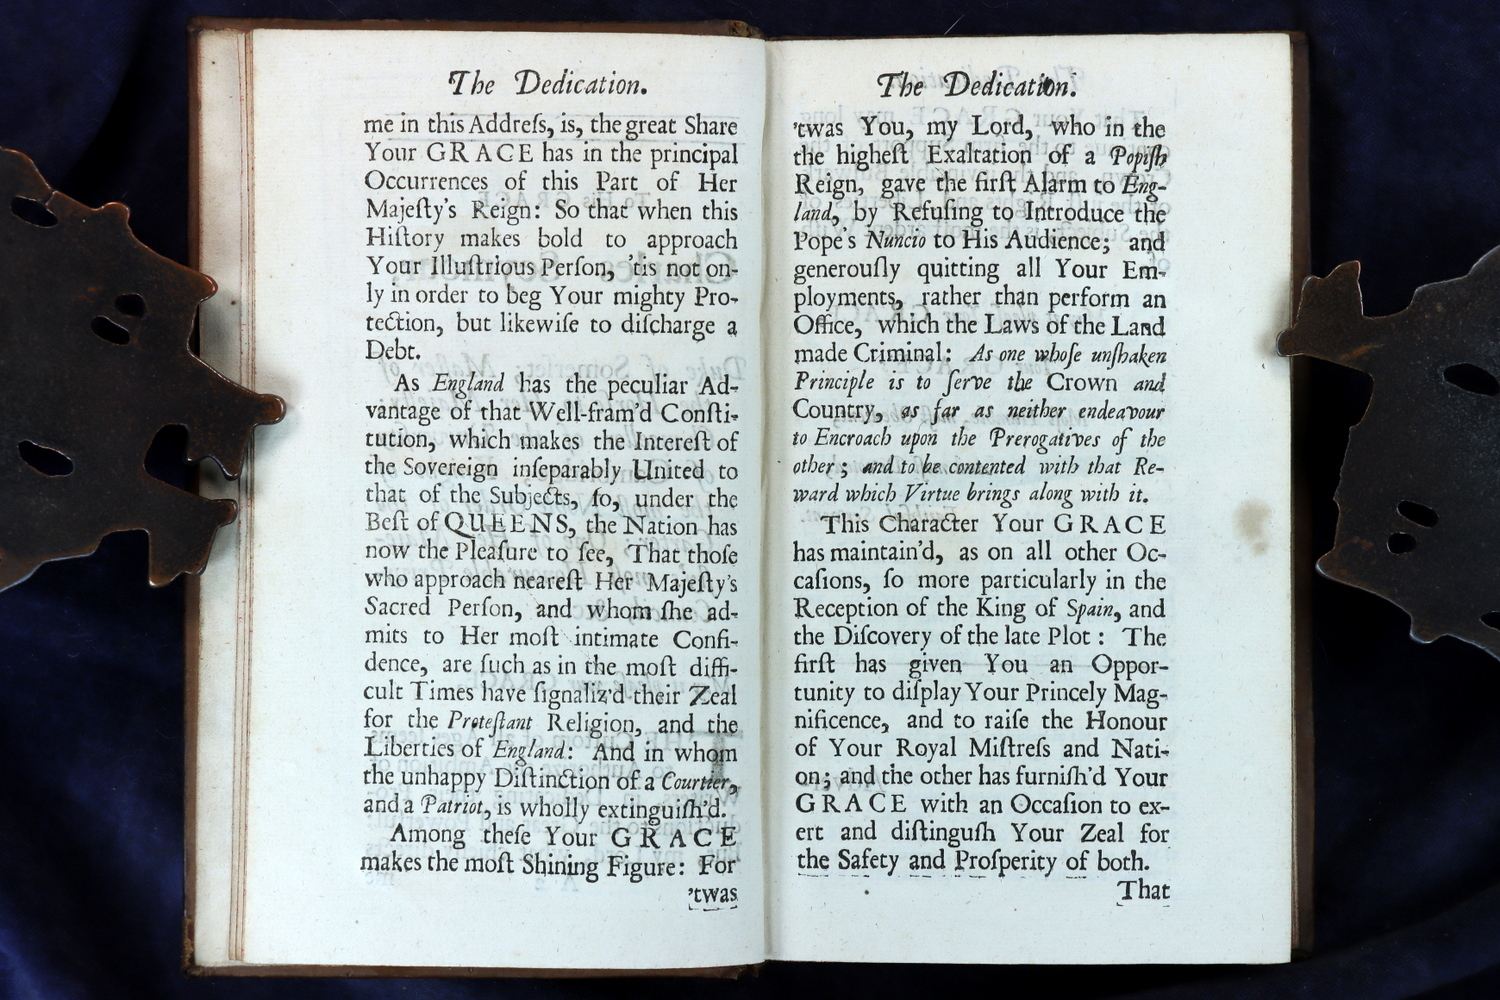 The Dedication.
me in this Addreſs, is, the great Share
Your GRACE has in the principal
Occurrences of this Part of Her
Majeſty's Reign: So that when this
Hiſtory makes bold to approach
Your Illuſtrious Perſon, 'tis not on-
ly in order to beg Your mighty Pro-
tection, but likewiſe to diſcharge a
Debt.
As England has the peculiar Ad-
vantage of that Well-fram'd Conſti-
tution, which makes the Intereſt of
the Sovereign inſeparably United to
that of the Subjects, ſo, under the
Beſt of QUEENS, the Nation has
now the Pleaſure to ſee, That thoſe
who approach neareſt Her Majeſty's
Sacred Perſon, and whom ſhe ad-
mits to Her moſt intimate Confi-
dence, are ſuch as in the moſt diffi-
cult Times have ſignaliz'd their Zeal
for the Proteſtant Religion, and the
Liberties of England: And in whom
the unhappy Diſtinction of a Courtier,
and a Patriot, is wholly extinguiſh'd.
Among theſe Your GRACE
makes the moſt Shining Figure: For
'twas
The Dedication.
'twas You, my Lord, who in the
the higheſt Exaltation of a Popiſh
Reign, gave the firſt Alarm to Eng-
land, by Refuſing to Introduce the
Pope's Nuncio to His Audience; and
generouſly quitting all Your Em-
ployments, rather than perform an
Office, which the Laws of the Land
made Criminal: As one whoſe unſhaken
Principle is to ſerve the Crown and
Country, as far as neither endeavour
to Encroach upon the Prerogatives of the
other; and to be contented with that Re-
ward which Virtue brings along with it.
This Character Your GRACE
has maintain'd, as on all other Oc-
caſions, ſo more particularly in the
Reception of the King of Spain, and
the Diſcovery of the late Plot: The
firſt has given You an Oppor-
tunity to diſplay Your Princely Mag-
nificence, and to raiſe the Honour
of Your Royal Miſtreſs and Nati-
on; and the other has furniſh'd Your
GRACE with an Occaſion to ex-
ert and diſtinguſh Your Zeal for
the Safety and Proſperity of both.
That